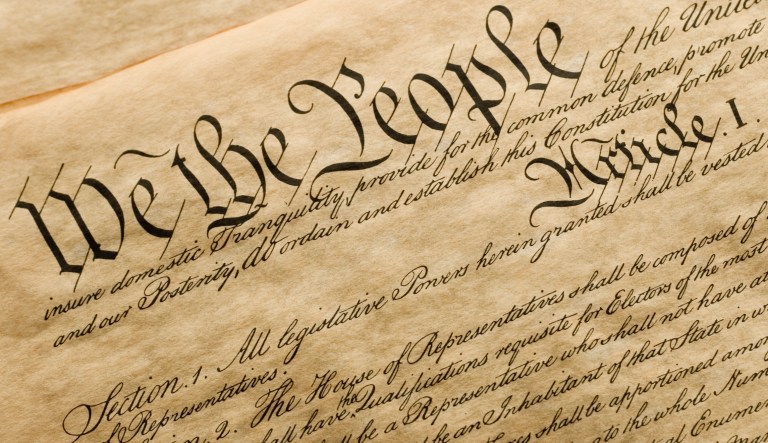 We the People of the United
insure domestic Tranquility, provide for the common defence, promote
and our Posterity, do ordain and establish this Constitution for the Un
Article. I.
Section. 1. All legislative Powers herein granted shall be vested
of Representatives.
Section. 2. The House of Representatives shall be composed of
shall have the Qualifications requisite for Electors of the most
shall be a Representative who shall not have at
be an Inhabitant of that State in w
shall be apportioned amon
to the whole Num
Enumer